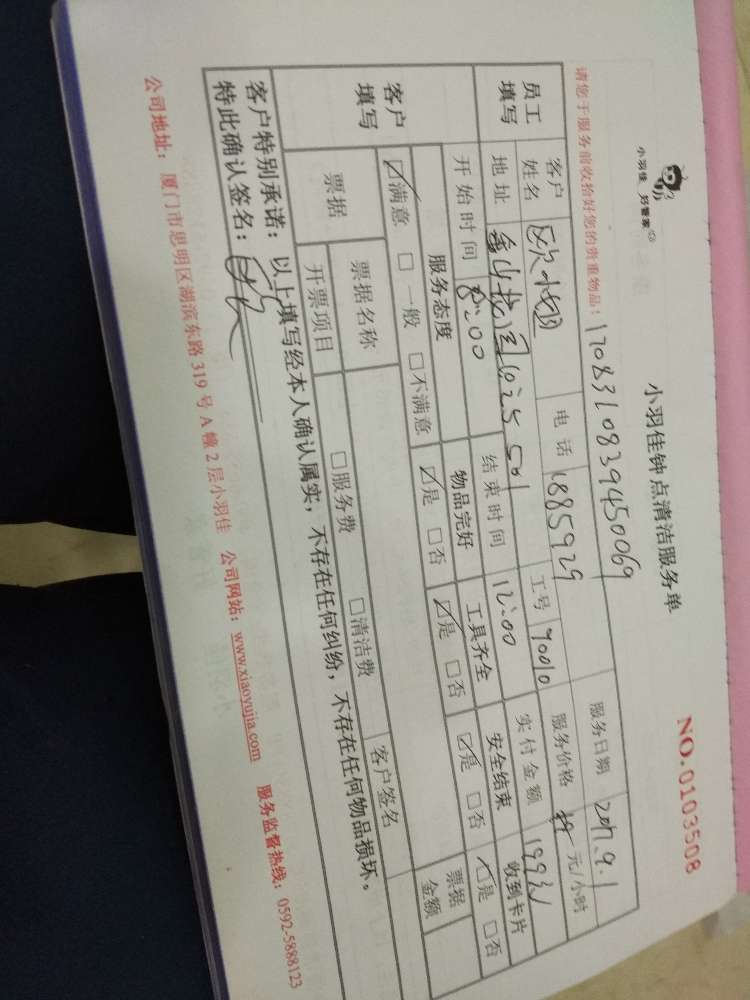 小羽佳 好管家
小羽佳钟点清洁服务单
NO.0103508
请您于服务前收拾好您的贵重物品！
1708310839450069
服务日期 2017.9.1
员工填写 客户姓名 欧小姐 电话 1885929 工号 90010 服务价格 元/小时
地址 金山 625 501 实付金额 199元
开始时间 8:00 结束时间 12:00
客户填写 服务态度 物品完好 工具齐全 安全结束 收到卡片
☑满意 □一般 □不满意 ☑是 □否 ☑是 □否 ☑是 □否 ☑是 □否
票据 票据名称 客户签名 票据金额
开票项目 □服务费 □清洁费
客户特别承诺：以上填写经本人确认属实，不存在任何纠纷，不存在任何物品损坏。
特此确认签名：
公司地址：厦门市思明区湖滨东路319号A幢2层小羽佳 公司网站：www.xiaoyujia.com 服务监督热线：0592-5888123